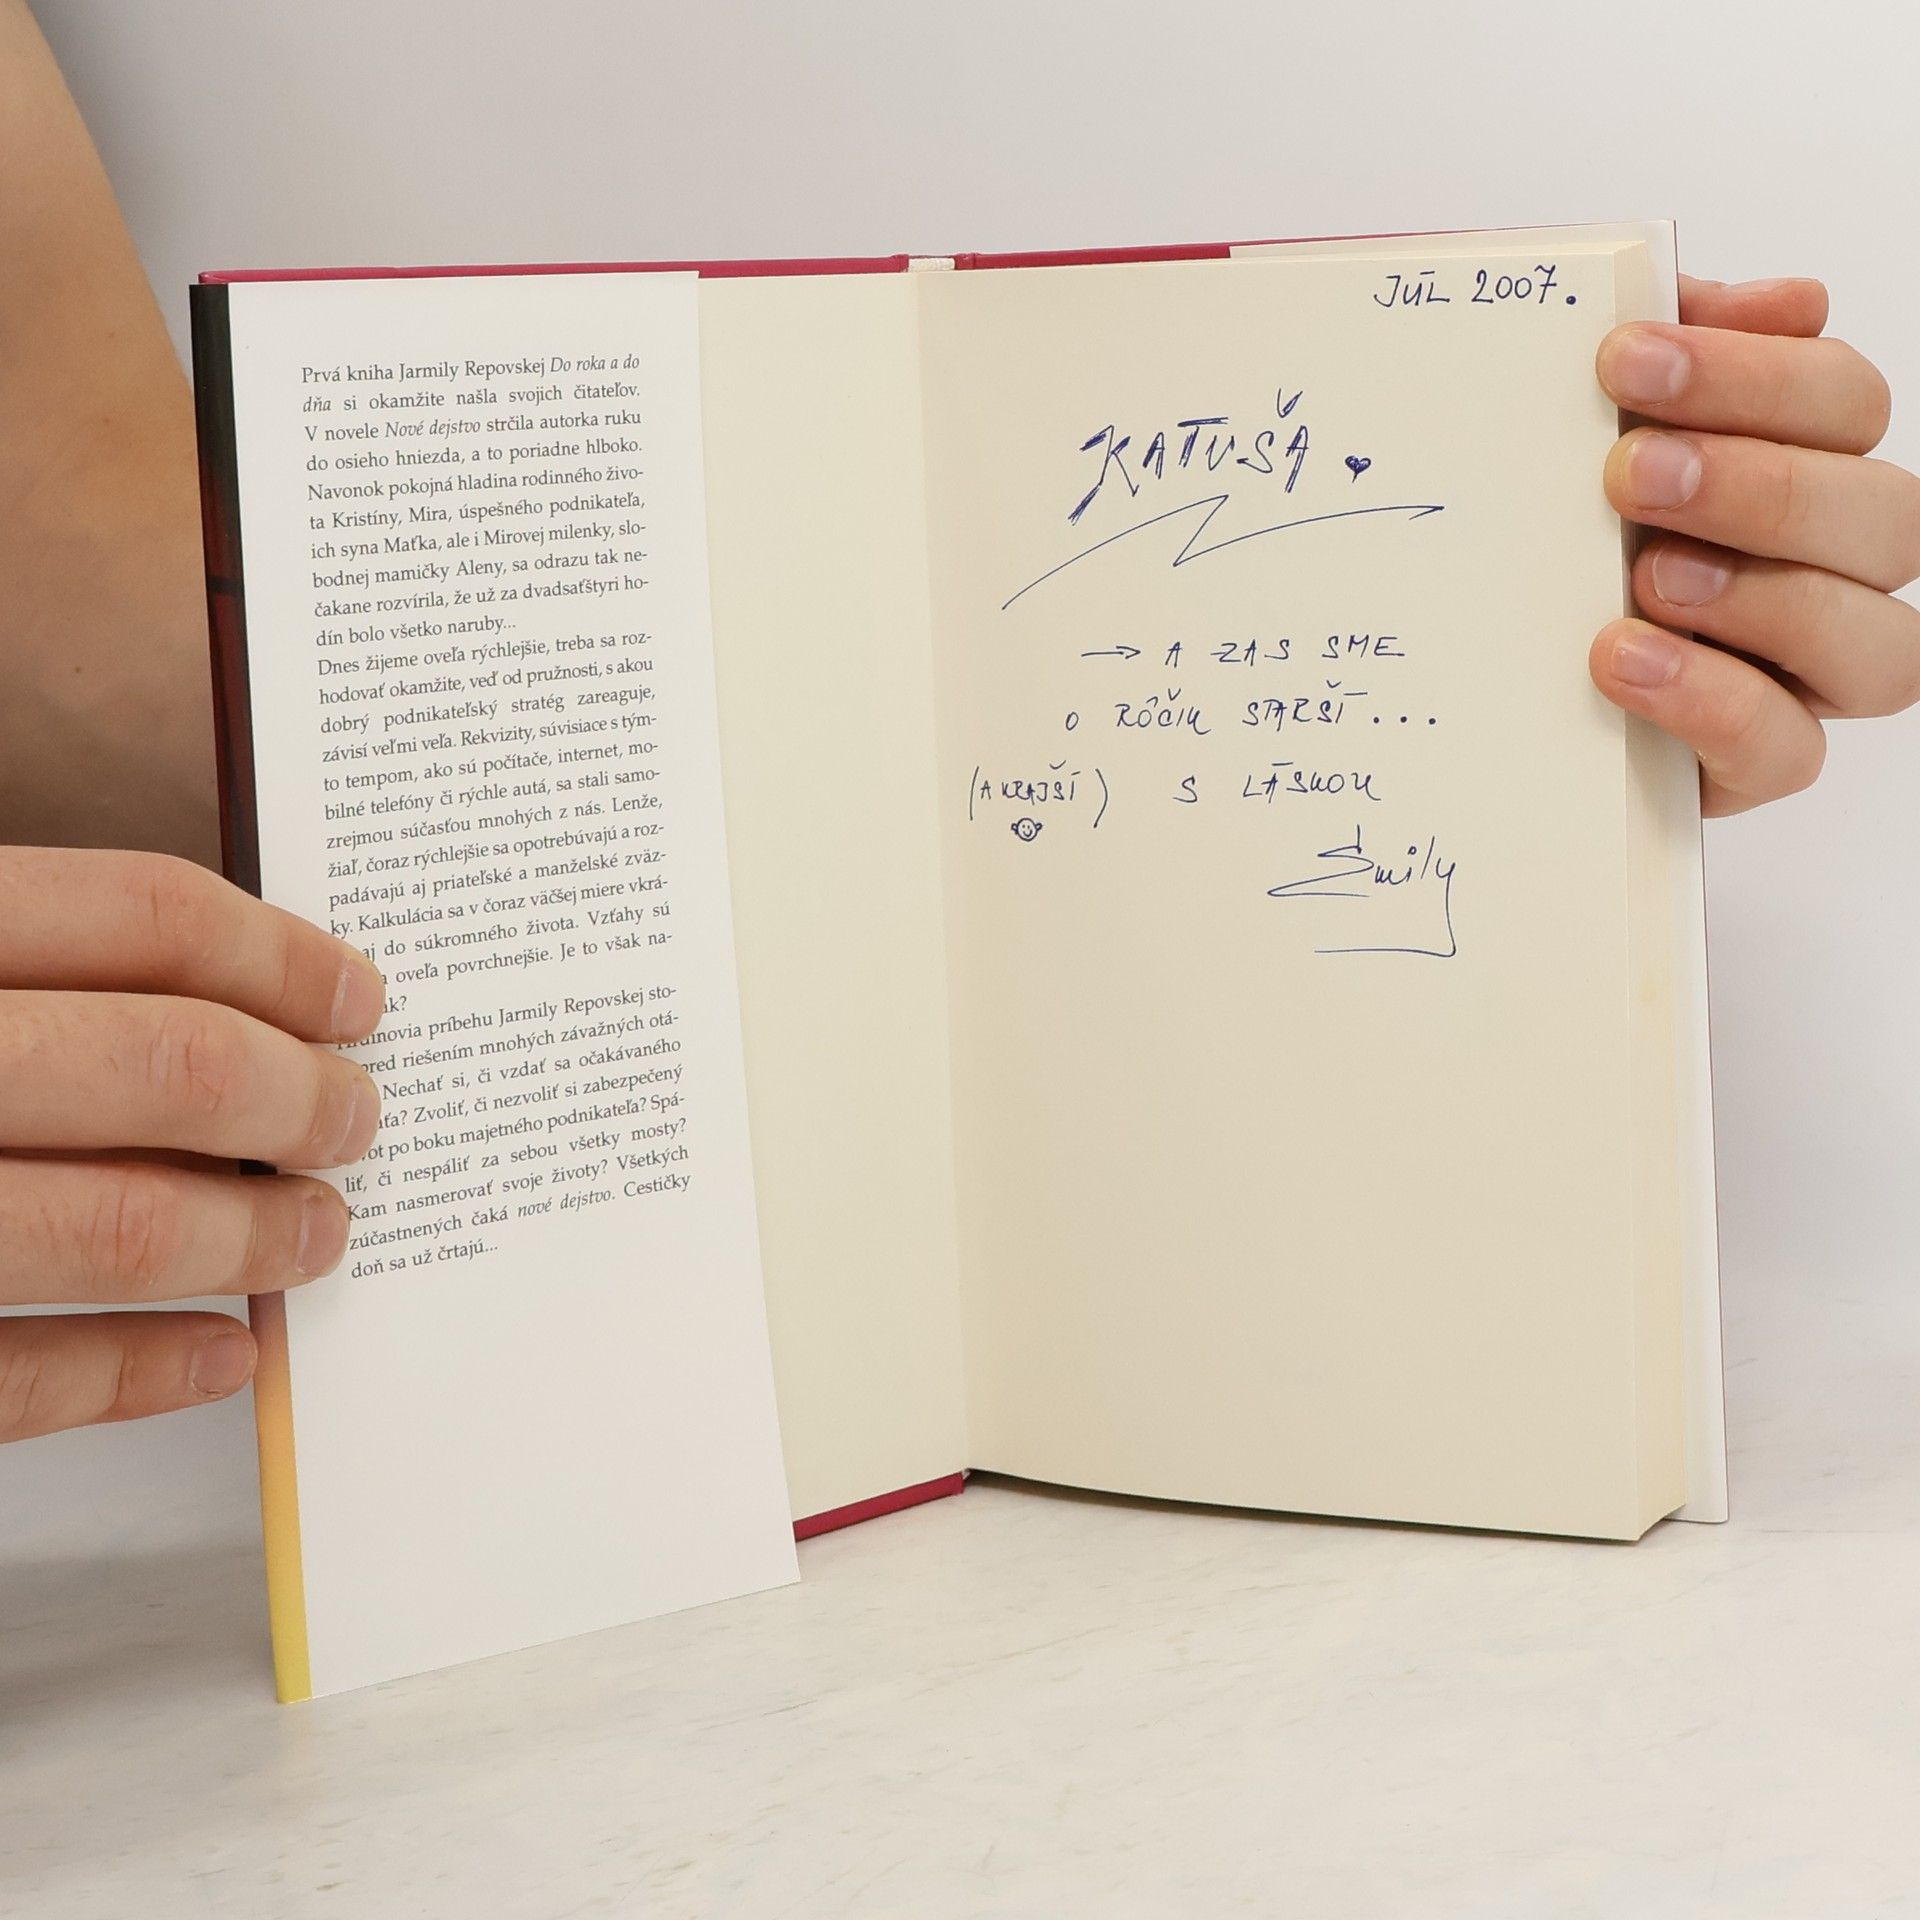 Prvá kniha Jarmily Repovskej Do roka a do
dňa si okamžite našla svojich čitateľov.
V novele Nové dejstvo strčila autorka ruku
do osieho hniezda, a to poriadne hlboko.
Navonok pokojná hladina rodinného živo-
ta Kristíny, Mira, úspešného podnikateľa,
ich syna Maťka, ale i Mirovej milenky, slo-
bodnej mamičky Aleny, sa odrazu tak ne-
čakane rozvírila, že už za dvadsaťštyri ho-
dín bolo všetko naruby...
Dnes žijeme oveľa rýchlejšie, treba sa roz-
hodovať okamžite, veď od pružnosti, s akou
dobrý podnikateľský stratég zareaguje,
závisí veľmi veľa. Rekvizity, súvisiace s tým-
to tempom, ako sú počítače, internet, mo-
bilné telefóny či rýchle autá, sa stali samo-
zrejmou súčasťou mnohých z nás. Lenže,
žiaľ, čoraz rýchlejšie sa opotrebúvajú a roz-
padávajú aj priateľské a manželské zväz-
ky. Kalkulácia sa v čoraz väčšej miere vkrá-
aj do súkromného života. Vzťahy sú
oveľa povrchnejšie. Je to však na-
ak?
príbehu Jarmily Repovskej sto-
pred riešením mnohých závažných otá-
Nechať si, či vzdať sa očakávaného
Zvoliť, či nezvoliť si zabezpečený
po boku majetného podnikateľa? Spá-
liť, či nespáliť za sebou všetky mosty?
Kam nasmerovať svoje životy? Všetkých
zúčastnených čaká nové dejstvo. Cestičky
doň sa už črtajú...
JÚL 2007.
KATUŠA
→ A ZAS SME
O RÔČIK STARŠÍ...
(A KRAJŠÍ) S LÁSKOU
Emily